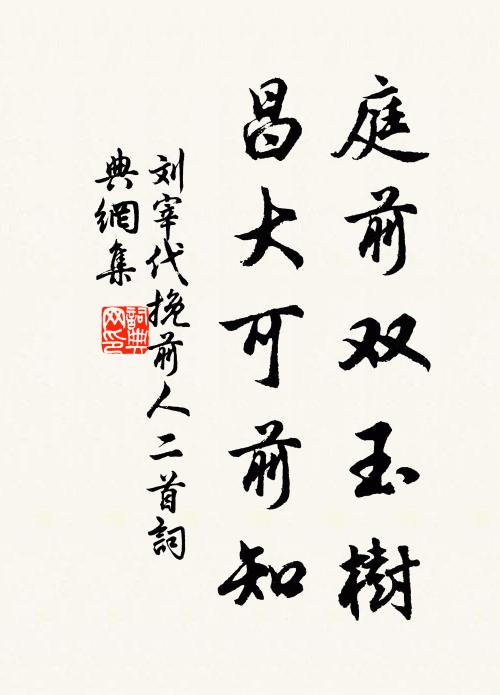 庭前双玉樹
昌大可前知
刘宰代挽前人二首詞
典網集
詞典
网印